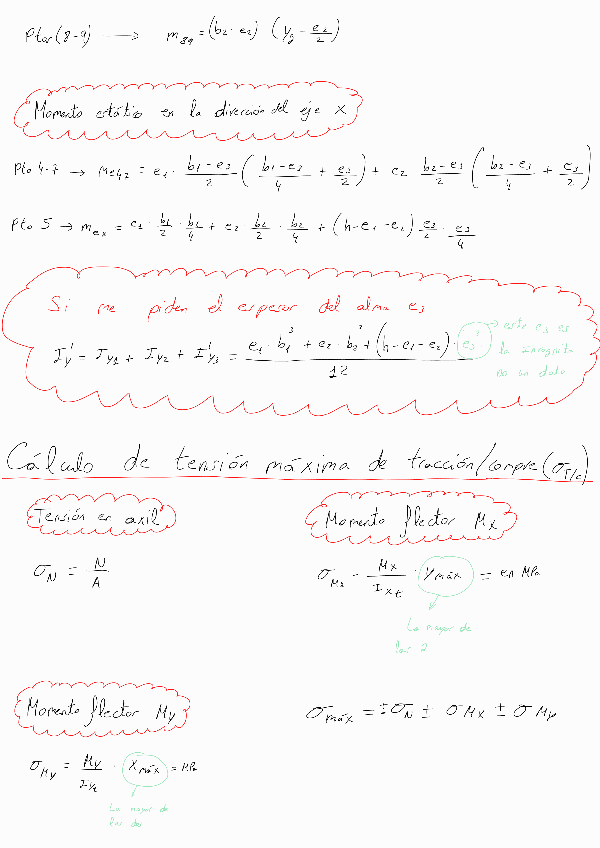 Ptos (8-9) → m₈₉ = (b₂·e₂) (y₈ - e₂/2)
"Momento estático en la dirección del eje X
Pto 4-7 → me₄₂ = e₁· (b₁-e₃)/2 · ((b₁-e₃)/4 + e₃/2) + e₂ (b₂-e₃)/2 ((b₂-e₃)/4 + e₃/2)
Pto 5 → m_ex = e₁· b₁/2 · b₁/4 + e₂ b₂/2 · b₂/4 + (h-e₁-e₂) e₃/2 · e₃/4
Si me piden el espesor del alma e₃
I'y = Iy₁ + Iy₂ + I'y₃ = (e₁·b₁³ + e₂·b₂³ + (h-e₁-e₂)·e₃³)/12
→ este e₃ es
la incognita
no un dato
Cálculo de tensión máxima de tracción/compre(σT/c)
"Tensión en axil"
Momento flector Mx
σN = N/A
σMx = Mx/Ixt · Ymáx = en MPa
La mayor de
las 2
Momento flector My
σmáx = ±σN ± σMx ± σMy
σMy = My/Iyt · Xmáx = MPa
La mayor de
las dos